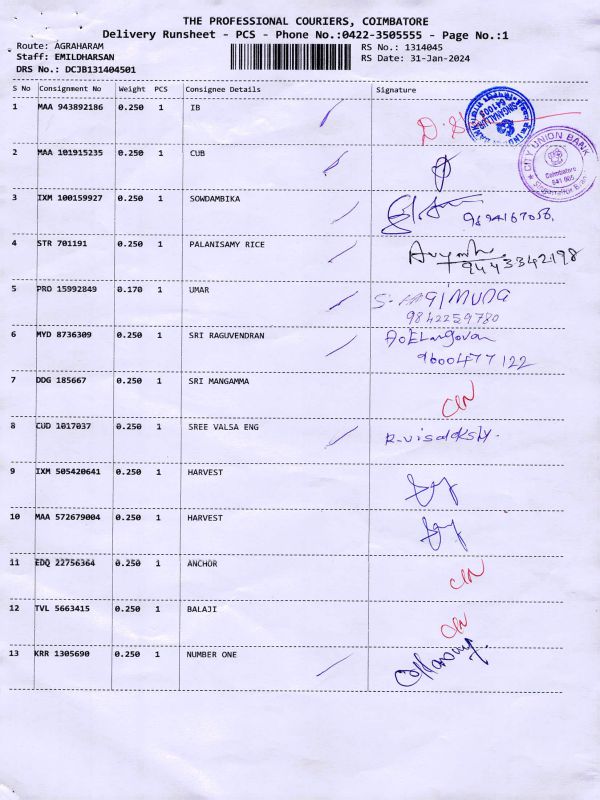 THE PROFESSIONAL COURIERS, COIMBATORE
Delivery Runsheet - PCS - Phone No.:0422-3505555 - Page No.:1
Route: AGRAHARAM RS No.: 1314045
Staff: EMILDHARSAN RS Date: 31-Jan-2024
DRS No.: DCJB131404501
S No Consignment No Weight PCS Consignee Details Signature
1 MAA 943892186 0.250 1 IB
SINGANALLUR
641005
2 MAA 101915235 0.250 1 CUB
CITY UNION BANK
Coimbatore
641 005
3 IXM 100159927 0.250 1 SOWDAMBIKA
4 STR 701191 0.250 1 PALANISAMY RICE
9443342198
5 PRO 15992849 0.170 1 UMAR
9842259780
6 MYD 8736309 0.250 1 SRI RAGUVENDRAN
9600477122
7 DDG 185667 0.250 1 SRI MANGAMMA
8 CUD 1017037 0.250 1 SREE VALSA ENG
9 IXM 505420641 0.250 1 HARVEST
10 MAA 572679004 0.250 1 HARVEST
11 EDQ 22756364 0.250 1 ANCHOR
12 TVL 5663415 0.250 1 BALAJI
13 KRR 1305690 0.250 1 NUMBER ONE